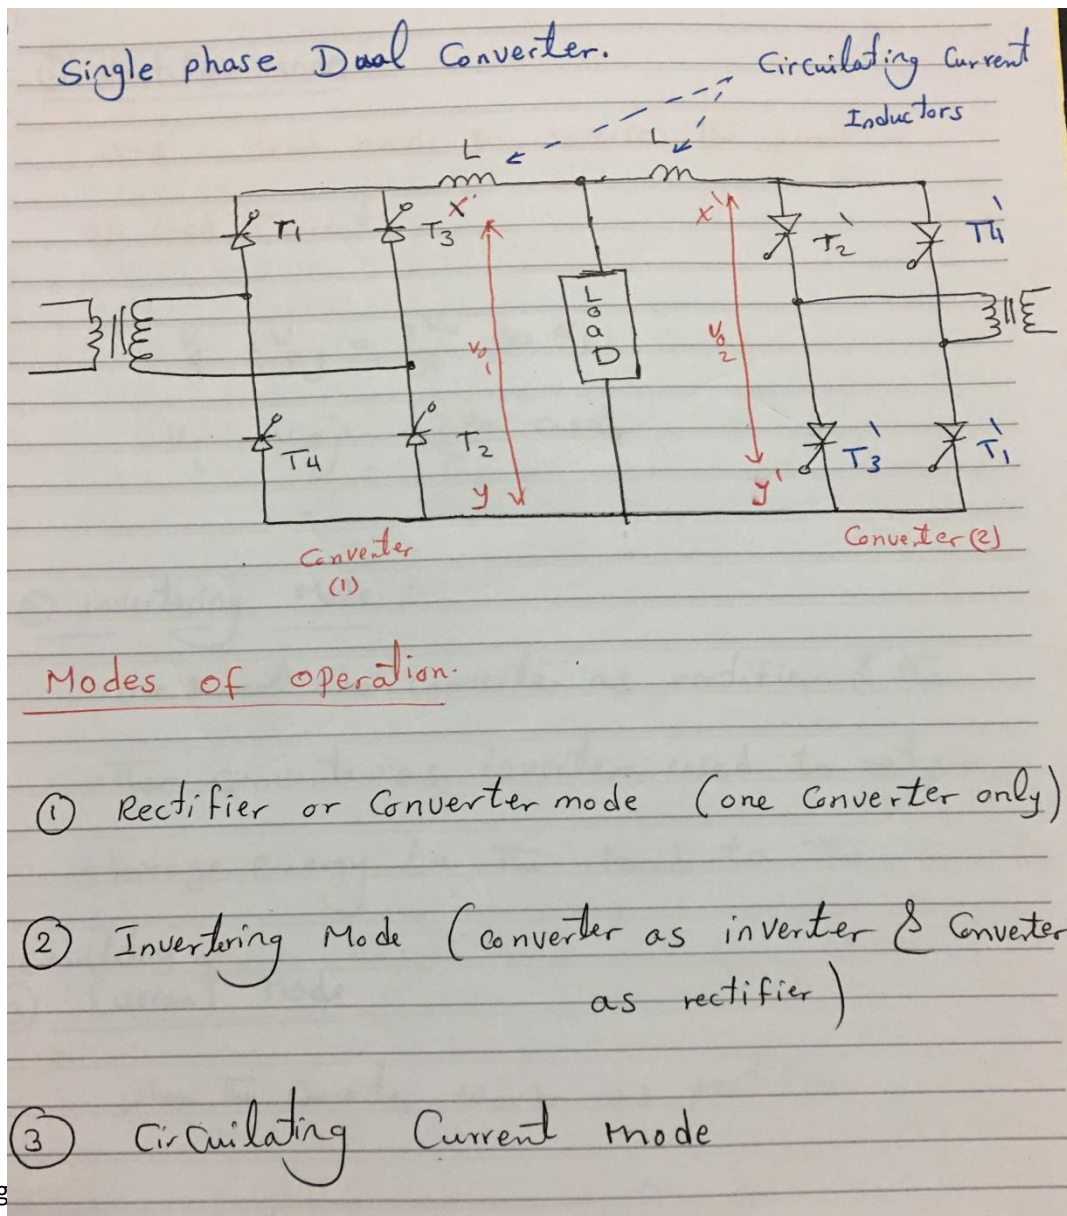 Single phase Dual Converter.
Circuilating Current
Inductors
L
L
X
X'
T1
T3
T2'
T4'
Load
Vo1
Vo2
T4
T2
T3'
T1'
y
y'
Converter
(1)
Converter (2)
Modes of operation.
① Rectifier or Converter mode (one Converter only)
② Invertering Mode (converter as inverter & Converter
as rectifier)
③ Circuilating Current mode
g